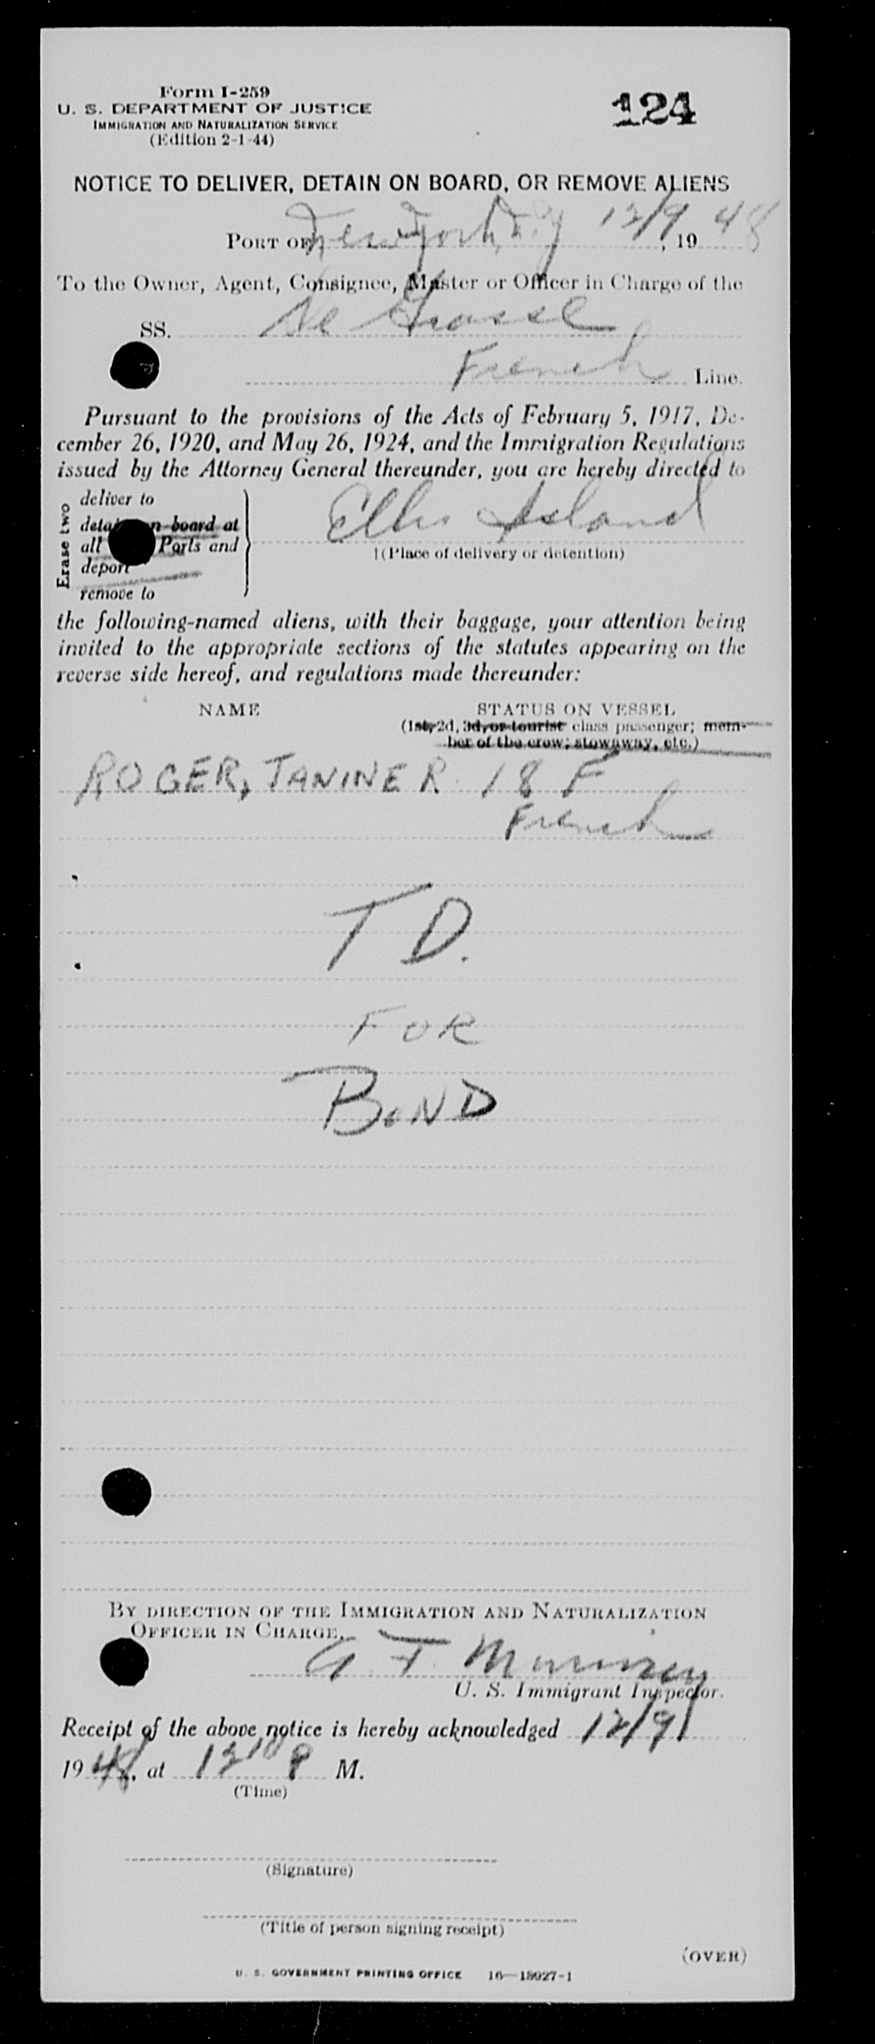 Form I-259
U. S. DEPARTMENT OF JUSTICE
IMMIGRATION AND NATURALIZATION SERVICE
(Edition 2-1-44)
124
NOTICE TO DELIVER, DETAIN ON BOARD, OR REMOVE ALIENS
PORT OF New York, N.Y 12/9, 19 48
To the Owner, Agent, Consignee, Master or Officer in Charge of the
SS. De Grasse
French Line.
Pursuant to the provisions of the Acts of February 5, 1917, De-
cember 26, 1920, and May 26, 1924, and the Immigration Regulations
issued by the Attorney General thereunder, you are hereby directed to
Erase two
deliver to
detain on board at
all Ports and
deport
remove to
Ellis Island
†(Place of delivery or detention)
the following-named aliens, with their baggage, your attention being
invited to the appropriate sections of the statutes appearing on the
reverse side hereof, and regulations made thereunder:
NAME STATUS ON VESSEL
(1st, 2d, 3d, or tourist class passenger; mem-
ber of the crew; stowaway, etc.)
ROGER, TANINE R 18 F
French
T D.
FOR
BOND
BY DIRECTION OF THE IMMIGRATION AND NATURALIZATION
OFFICER IN CHARGE.
U. S. Immigrant Inspector.
Receipt of the above notice is hereby acknowledged 12/9
1948, at 12 10 P M.
(Time)
(Signature)
(Title of person signing receipt)
(OVER)
U. S. GOVERNMENT PRINTING OFFICE 16—18927-1